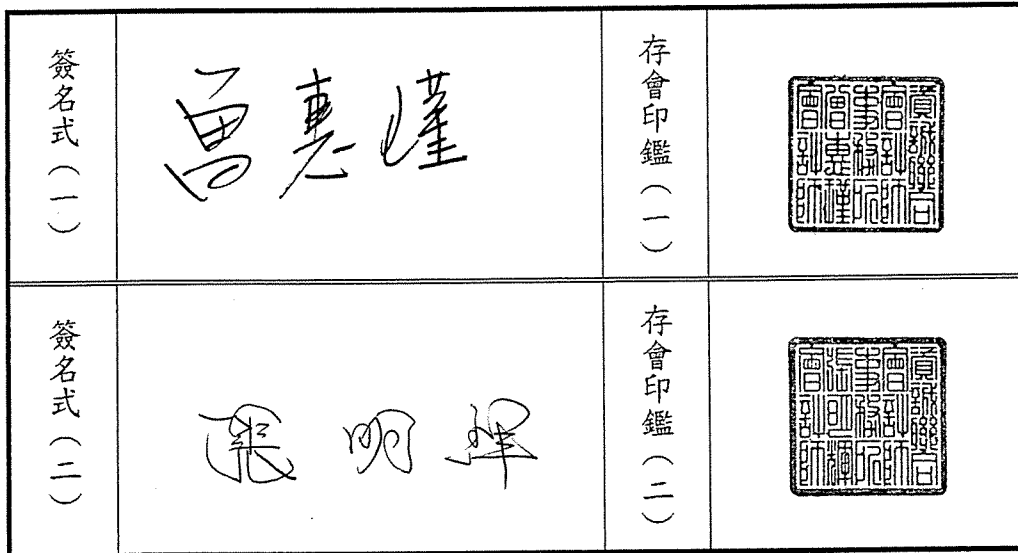 簽名式（一）
曾惠瑾
存會印鑑（一）
資誠聯合
會計師
事務所
曾惠瑾
會計師
簽名式（二）
張明輝
存會印鑑（二）
資誠聯合
會計師
事務所
張明輝
會計師